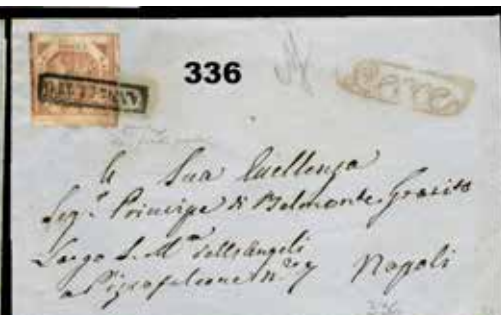 336
ANNULLATO
A Sua Eccellenza
Sig.r Principe di Belmonte Granito
Largo S. M.a degli Angeli
a Pizzofalcone N.o
Napoli
336